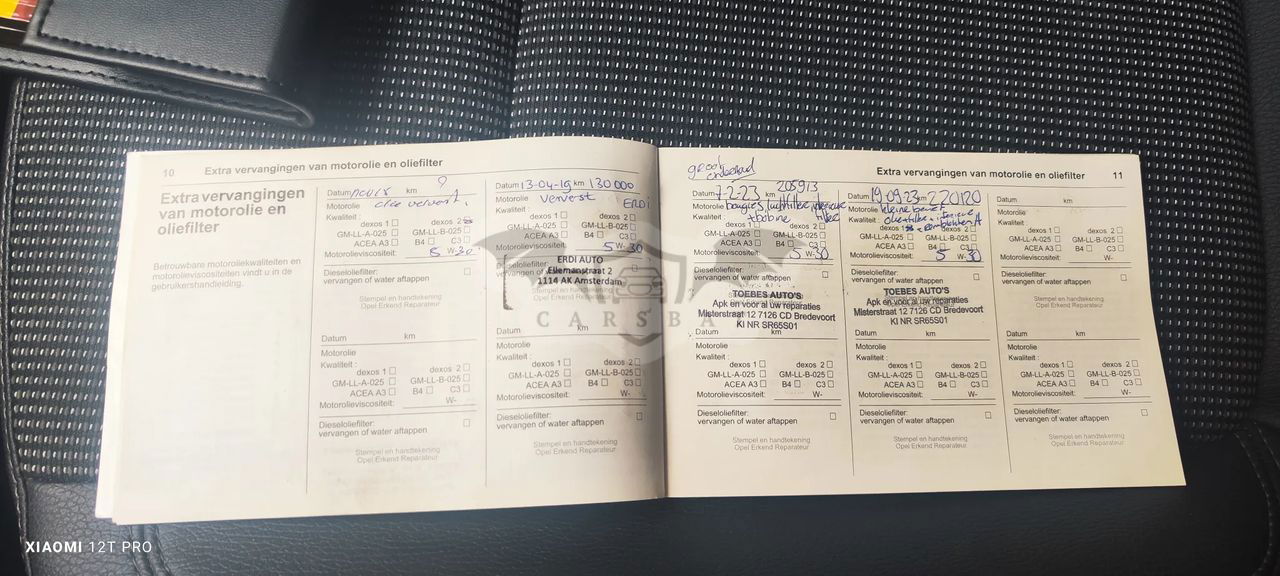 10 Extra vervangingen van motorolie en oliefilter
Extra vervangingen
van motorolie en
oliefilter
Betrouwbare motoroliekwaliteiten en
motorolieviscositeiten vindt u in de
gebruikershandleiding.
Datum km
Motorolie olie
Kwaliteit :
dexos 1 dexos 2
GM-LL-A-025 GM-LL-B-025
ACEA A3 B4 C3
Motorolieviscositeit: 5 W-30
Dieseloliefilter:
vervangen of water aftappen
Stempel en handtekening
Opel Erkend Reparateur
Datum km
Motorolie
Kwaliteit :
dexos 1 dexos 2
GM-LL-A-025 GM-LL-B-025
ACEA A3 B4 C3
Motorolieviscositeit: W-
Dieseloliefilter:
vervangen of water aftappen
Stempel en handtekening
Opel Erkend Reparateur
Datum 13-04-19 km 130000
Motorolie Ververst ERDI
Kwaliteit :
dexos 1 dexos 2
GM-LL-A-025 GM-LL-B-025
ACEA A3 B4 C3
Motorolieviscositeit: 5 W-30
Dieseloliefilter:
vervangen
ERDI AUTO
Ellemanstraat 2
1114 AK Amsterdam
Datum km
Motorolie
Kwaliteit :
dexos 1 dexos 2
GM-LL-A-025 GM-LL-B-025
ACEA A3 B4 C3
Motorolieviscositeit: W-
Dieseloliefilter:
vervangen of water aftappen
Stempel en handtekening
Opel Erkend Reparateur
Extra vervangingen van motorolie en oliefilter 11
groot
onderhoud
Datum 7-2-23 km 205913
Motorolie Bougies luchtfilter
Kwaliteit : + bobine filter
dexos 1 dexos 2
GM-LL-A-025 GM-LL-B-025
ACEA A3 B4 C3
Motorolieviscositeit: 5 W-30
Dieseloliefilter:
vervangen of water aftappen
TOEBES AUTO'S
Apk en voor al uw reparaties
Misterstraat 12 7126 CD Bredevoort
KI NR SR65S01
Datum km
Motorolie
Kwaliteit :
dexos 1 dexos 2
GM-LL-A-025 GM-LL-B-025
ACEA A3 B4 C3
Motorolieviscositeit: W-
Dieseloliefilter:
vervangen of water aftappen
Stempel en handtekening
Opel Erkend Reparateur
Datum 19-09-23 km 220120
Motorolie kleine beurt
Kwaliteit : oliefilter
dexos 1 dexos 2
GM-LL-A-025 GM-LL-B-025
ACEA A3 B4 C3
Motorolieviscositeit: 5 W-30
Dieseloliefilter:
vervangen of water aftappen
TOEBES AUTO'S
Apk en voor al uw reparaties
Misterstraat 12 7126 CD Bredevoort
KI NR SR65S01
Datum km
Motorolie
Kwaliteit :
dexos 1 dexos 2
GM-LL-A-025 GM-LL-B-025
ACEA A3 B4 C3
Motorolieviscositeit: W-
Dieseloliefilter:
vervangen of water aftappen
Stempel en handtekening
Opel Erkend Reparateur
Datum km
Motorolie
Kwaliteit :
dexos 1 dexos 2
GM-LL-A-025 GM-LL-B-025
ACEA A3 B4 C3
Motorolieviscositeit: W-
Dieseloliefilter:
vervangen of water aftappen
Stempel en handtekening
Opel Erkend Reparateur
Datum km
Motorolie
Kwaliteit :
dexos 1 dexos 2
GM-LL-A-025 GM-LL-B-025
ACEA A3 B4 C3
Motorolieviscositeit: W-
Dieseloliefilter:
vervangen of water aftappen
Stempel en handtekening
Opel Erkend Reparateur
CARSBA
XIAOMI 12T PRO